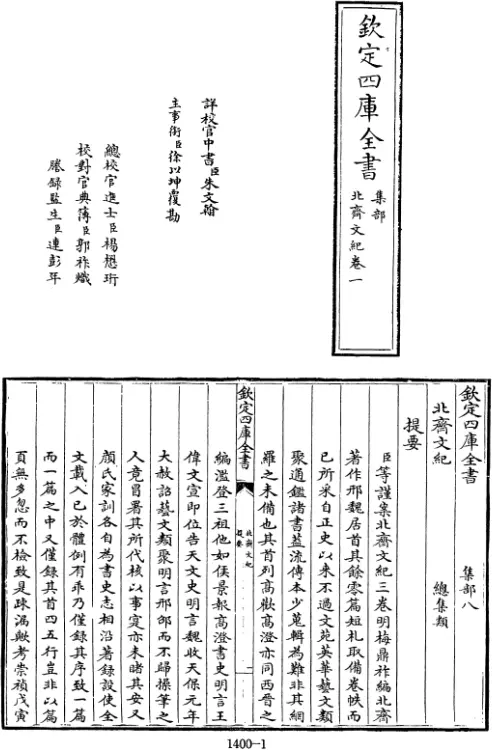 欽定四庫全書
集部
北齊文紀卷一
詳校官中書臣朱文翰
主事銜臣徐以坤覆勘
總校官進士臣楊懋珩
校對官典簿臣郭祚熾
謄錄監生臣連彭年
欽定四庫全書
集部八
北齊文紀
總集類
提要
臣等謹案北齊文紀三卷明梅鼎祚編北齊
著作邢魏居首其餘零篇短札取備卷帙而
已所采自正史以來不過文苑英華藝文類
聚通鑑諸書蓋流傳本少蒐輯為難非其網
羅之未備也其首列高歡高澄亦同西晉之
欽定四庫全書
北齊文紀
提要
一
編濫登三祖他如侯景報高澄書史明言王
偉文宣即位告天文史明言魏收天保元年
大赦詔藝文類聚明言邢邵而不歸操筆之
人竟署其所代核以事實亦未睹其安又
顏氏家訓各自為書史志相沿著錄設使全
文載入已於體例有乖乃僅錄其序致一篇
而一篇之中又僅錄其首四五行豈非以篇
頁無多忽而不檢致是疎漏歟考崇禎戊寅
1400-1